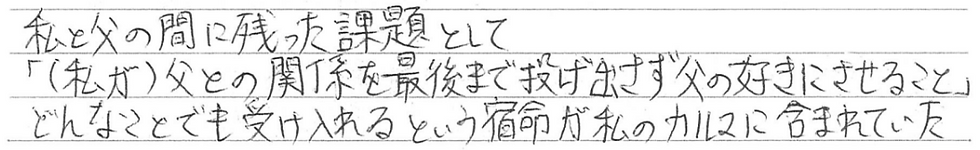 私と父の間に残った課題として
「(私が)父との関係を最後まで投げ出さず父の好きにさせること」
どんなことでも受け入れるという宿命が私のカルマに含まれていた